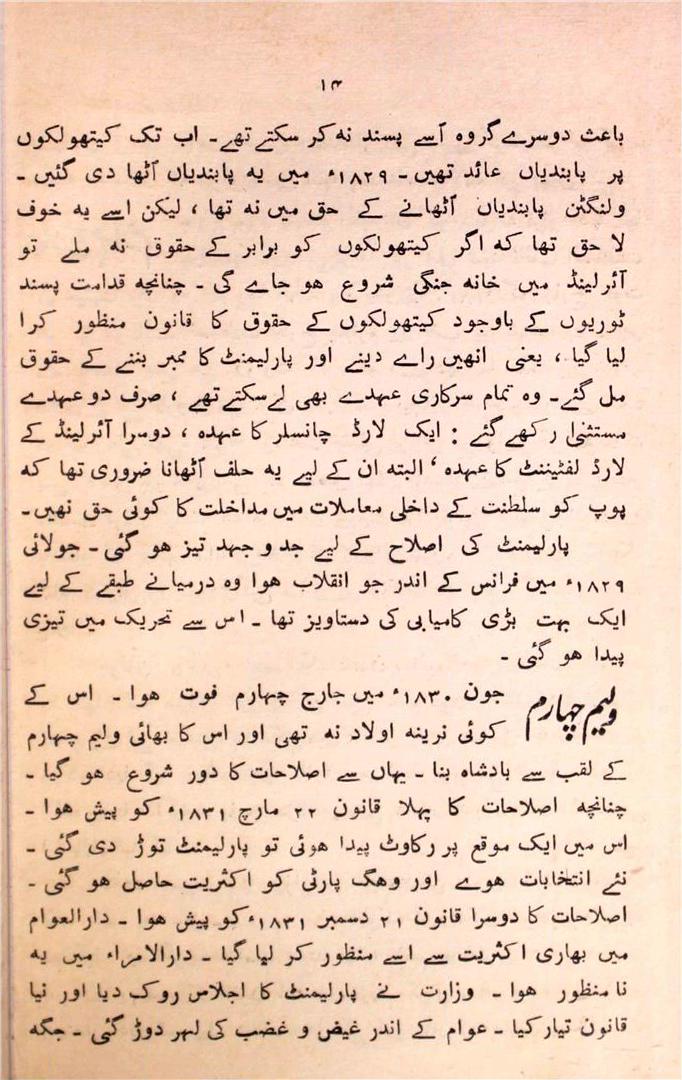 ۱۴
باعث دوسرے گروہ اُسے پسند نہ کر سکتے تھے۔ اب تک کیتھولکوں
پر پابندیاں عائد تھیں۔ ۱۸۲۹ء میں یہ پابندیاں اُٹھا دی گئیں۔
ولنگٹن پابندیاں اُٹھانے کے حق میں نہ تھا، لیکن اسے یہ خوف
لاحق تھا کہ اگر کیتھولکوں کو برابر کے حقوق نہ ملے تو
آئرلینڈ میں خانہ جنگی شروع ہو جاے گی۔ چنانچہ قدامت پسند
ٹوریوں کے باوجود کیتھولکوں کے حقوق کا قانون منظور کرا
لیا گیا، یعنی انھیں راے دینے اور پارلیمنٹ کا ممبر بننے کے حقوق
مل گئے۔ وہ تمام سرکاری عہدے بھی لے سکتے تھے، صرف دو عہدے
مستثنیٰ رکھے گئے: ایک لارڈ چانسلر کا عہدہ، دوسرا آئرلینڈ کے
لارڈ لفٹیننٹ کا عہدہ، البتہ ان کے لیے یہ حلف اُٹھانا ضروری تھا کہ
پوپ کو سلطنت کے داخلی معاملات میں مداخلت کا کوئی حق نہیں۔
پارلیمنٹ کی اصلاح کے لیے جد و جہد تیز ہو گئی۔ جولائی
۱۸۲۹ء میں فرانس کے اندر جو انقلاب ہوا وہ درمیانے طبقے کے لیے
ایک بہت بڑی کامیابی کی دستاویز تھا۔ اس سے تحریک میں تیزی
پیدا ہو گئی۔
ولیم چہارم
جون ۱۸۳۰ء میں جارج چہارم فوت ہوا۔ اس کے
کوئی نرینہ اولاد نہ تھی اور اس کا بھائی ولیم چہارم
کے لقب سے بادشاہ بنا۔ یہاں سے اصلاحات کا دور شروع ہو گیا۔
چنانچہ اصلاحات کا پہلا قانون ۲۲ مارچ ۱۸۳۱ء کو پیش ہوا۔
اس میں ایک موقع پر رکاوٹ پیدا ہوئی تو پارلیمنٹ توڑ دی گئی۔
نئے انتخابات ہوے اور وھگ پارٹی کو اکثریت حاصل ہو گئی۔
اصلاحات کا دوسرا قانون ۲۱ دسمبر ۱۸۳۱ء کو پیش ہوا۔ دارالعوام
میں بھاری اکثریت سے اسے منظور کر لیا گیا۔ دارالامراء میں یہ
نا منظور ہوا۔ وزارت نے پارلیمنٹ کا اجلاس روک دیا اور نیا
قانون تیار کیا۔ عوام کے اندر غیض و غضب کی لہر دوڑ گئی۔ جگہ